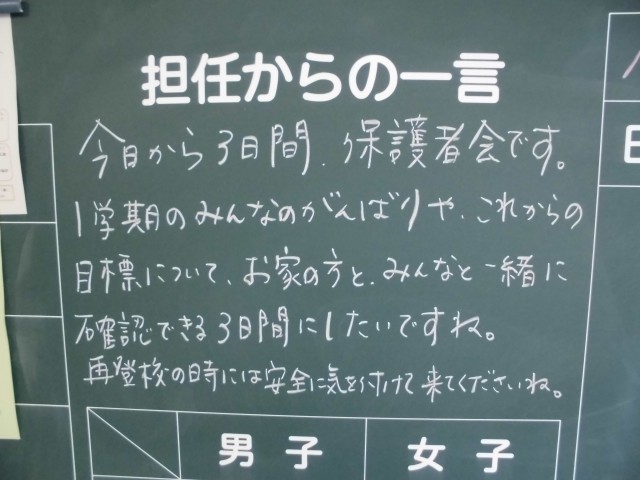 担任からの一言
今日から3日間、保護者会です。
1学期のみんなのがんばりや、これからの
目標について、お家の方と、みんなと一緒に
確認できる3日間にしたいですね。
再登校の時には安全に気を付けて来てくださいね。
男子 女子
日